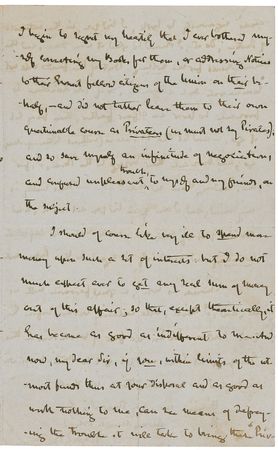 I begin to regret my heartily that I ever bothered my-
-self correcting my Books for them, or addressing Notices
to their Great fellow citizens of the Union on their be-
half,—and did not rather leave them to their own
questionable course as Privateers (we must not say Pirates),
and so save myself an infinitude of negociations,
trouble,
and unpleasant to myself and my friends, on
the subject.
I should of course like very ill to spend more
money upon such a set of interests: but I do not
much expect ever to get any real sum of money
out of this affair; so that, except theoretically, it
has become as good as indifferent to me. And
now, my dear Sir, if you, within limits of the ut-
-most funds thus at your disposal and as good as
worth nothing to me, can see means of defray-
-ing the trouble it will take to bring these Priv-